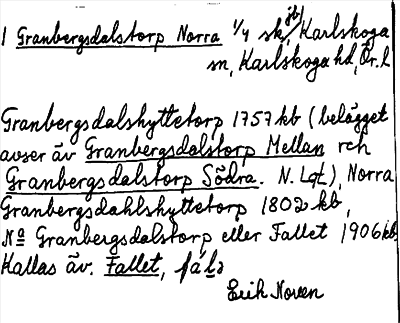 1 Granbergsdalstorp Norra 1/4 sk, jbl Karlskoga
sn, Karlskoga hd, Ör. l
Granbergsdalshyttetorp 1757 kb (belägget
avser äv Granbergsdalstorp Mellan och
Granbergsdalstorp Södra. N. Lgt.), Norra
Granbergsdahlshyttetorp 1802 kb,
No Granbergsdalstorp eller Fallet 1906 kb
Kallas äv. Fallet,
Erik Noren